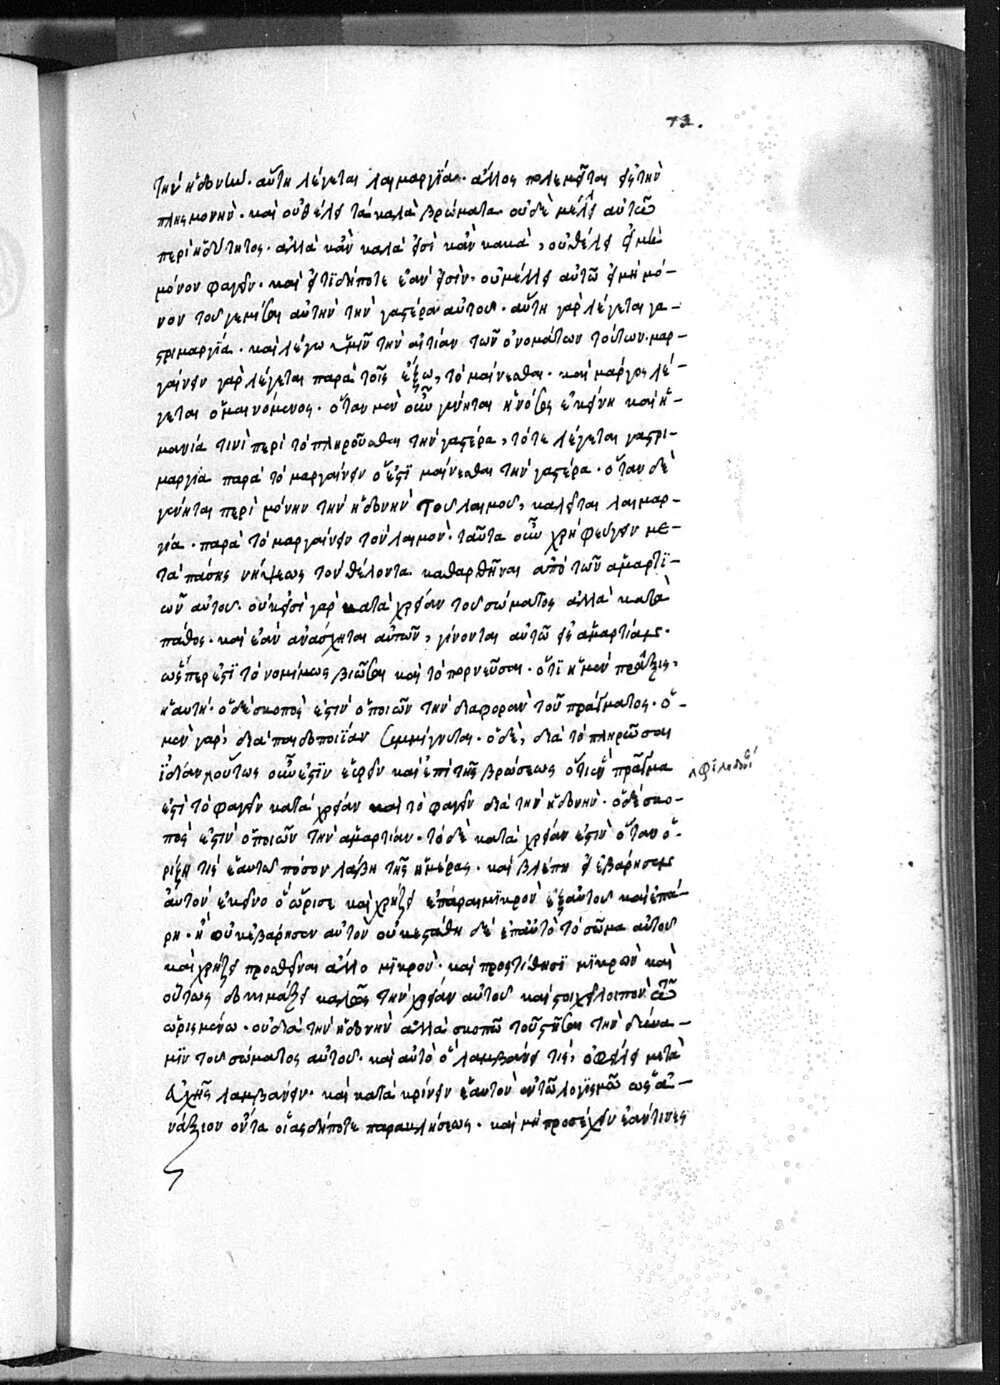 73.
τὴν ἡδονήν. αὕτη λέγεται λαιμαργία. ἄλλος πολεμεῖται εἰς τὴν
πλησμονήν. καὶ οὐ θέλει τὰ καλὰ βρώματα οὐδὲ μέλει αὐτῶ
περὶ ἡδύτητος. ἀλλὰ κἂν καλά εἰσὶ κἂν κακὰ, οὐ θέλει εἰ μὴ
μόνον φαγεῖν. καὶ εἴ τι δήποτε ἐὰν εἰσὶν. οὐ μέλλει αὐτῶ εἰ μὴ μό-
νον τοῦ γεμίσαι αὐτὴν τὴν γαστέρα αὐτοῦ. αὕτη γὰρ λέγεται γα-
στριμαργία. καὶ λέγω ὑμῖν τὴν αἰτίαν τῶν ὀνομάτων τούτων. μαρ-
γαίνειν γὰρ λέγεται παρὰ τοῖς ἔξω, τὸ μαίνεσθαι. καὶ μάργος λέ-
γεται ὁ μαινόμενος. ὅταν μὲν οὖν γένηται ἡ νόσος ἐκείνη καὶ ἡ
μανία τινὶ περὶ τὸ πληροῦσθαι τὴν γαστέρα, τότε λέγεται γαστρι-
μαργία παρὰ τὸ μαργαίνειν ὅ ἐστι μαίνεσθαι τὴν γαστέρα. ὅταν δὲ
γένηται περὶ μόνην τὴν ἡδονὴν τοῦ λαιμοῦ, καλεῖται λαιμαρ-
γία. παρὰ τὸ μαργαίνειν τὸν λαιμόν. ταῦτα οὖν χρὴ φεύγειν με-
τὰ πάσης νήψεως τὸν θέλοντα καθαρθῆναι ἀπὸ τῶν ἁμαρτι-
ῶν αὐτοῦ. οὐκ εἰσὶ γὰρ κατὰ χρείαν τοῦ σώματος ἀλλὰ κατὰ
πάθος. καὶ ἐὰν ἀνάσχηται αὐτῶν, γίνονται αὐτῶ εἰς ἁμαρτίας.
ὥσπερ ἐστὶ τὸ νομίμως βιῶσαι καὶ τὸ πορνεῦσαι. ὅτι ἡ μὲν πρᾶξις,
ἡ αὐτή. ὁ δὲ σκοπὸς ἐστὶν ὁ ποιῶν τὴν διαφορὰν τοῦ πράγματος. ὁ
μὲν γὰρ, διὰ παιδοποιΐαν συμμίγνυται. ὁ δὲ, διὰ τὸ πληρῶσαι
ἰδίαν οὕτως οὖν ἐστὶν εὑρεῖν καὶ ἐπὶ τῆς βρώσεως ὅτι ἓν πρᾶγμα
φιληδονί
ἐστὶ τὸ φαγεῖν κατὰ χρείαν καὶ τὸ φαγεῖν διὰ τὴν ἡδονήν. ὁ δὲ σκο-
πὸς ἐστὶν ὁ ποιῶν τὴν ἁμαρτίαν. τὸ δὲ κατὰ χρείαν ἐστὶν ὅταν ὁ-
ρίζῃ τίς ἑαυτῶ πόσον λάβῃ τῆς ἡμέρας. καὶ βλέπῃ εἰ ἐβάρησεν
αὐτὸν ἐκεῖνο ὃ ὥρισε καὶ χρήζει ἐπάραι μικρὸν ἐξ αὐτοῦ καὶ ἐπά-
ρῃ. ἢ οὐκ ἐβάρησεν αὐτὸν οὐκ ἐστάθη δὲ ἐπ' αὐτὸ τὸ σῶμα αὐτοῦ
καὶ χρήζει προσθεῖναι ἄλλο μικρόν. καὶ προστίθησι μικρὸν καὶ
οὕτως δοκιμάζει καλῶς τὴν χρείαν αὐτοῦ καὶ στοιχεῖ λοιπὸν τῶ
ὡρισμένω. οὐ διὰ τὴν ἡδονὴν ἀλλὰ σκοπῶ τοῦ στῆσαι τὴν δύνα-
μιν τοῦ σώματος αὐτοῦ. καὶ αὐτὸ ὃ λαμβάνει τίς, ὀφείλει μετὰ
εὐχῆς λαμβάνειν. καὶ κατακρίνειν ἑαυτὸν ἐν τῶ λογισμῶ ὡς ἀ-
νάξιον ὄντα οἵας δήποτε παρακλήσεως. καὶ μὴ προσέχειν ἐὰν τινὲς